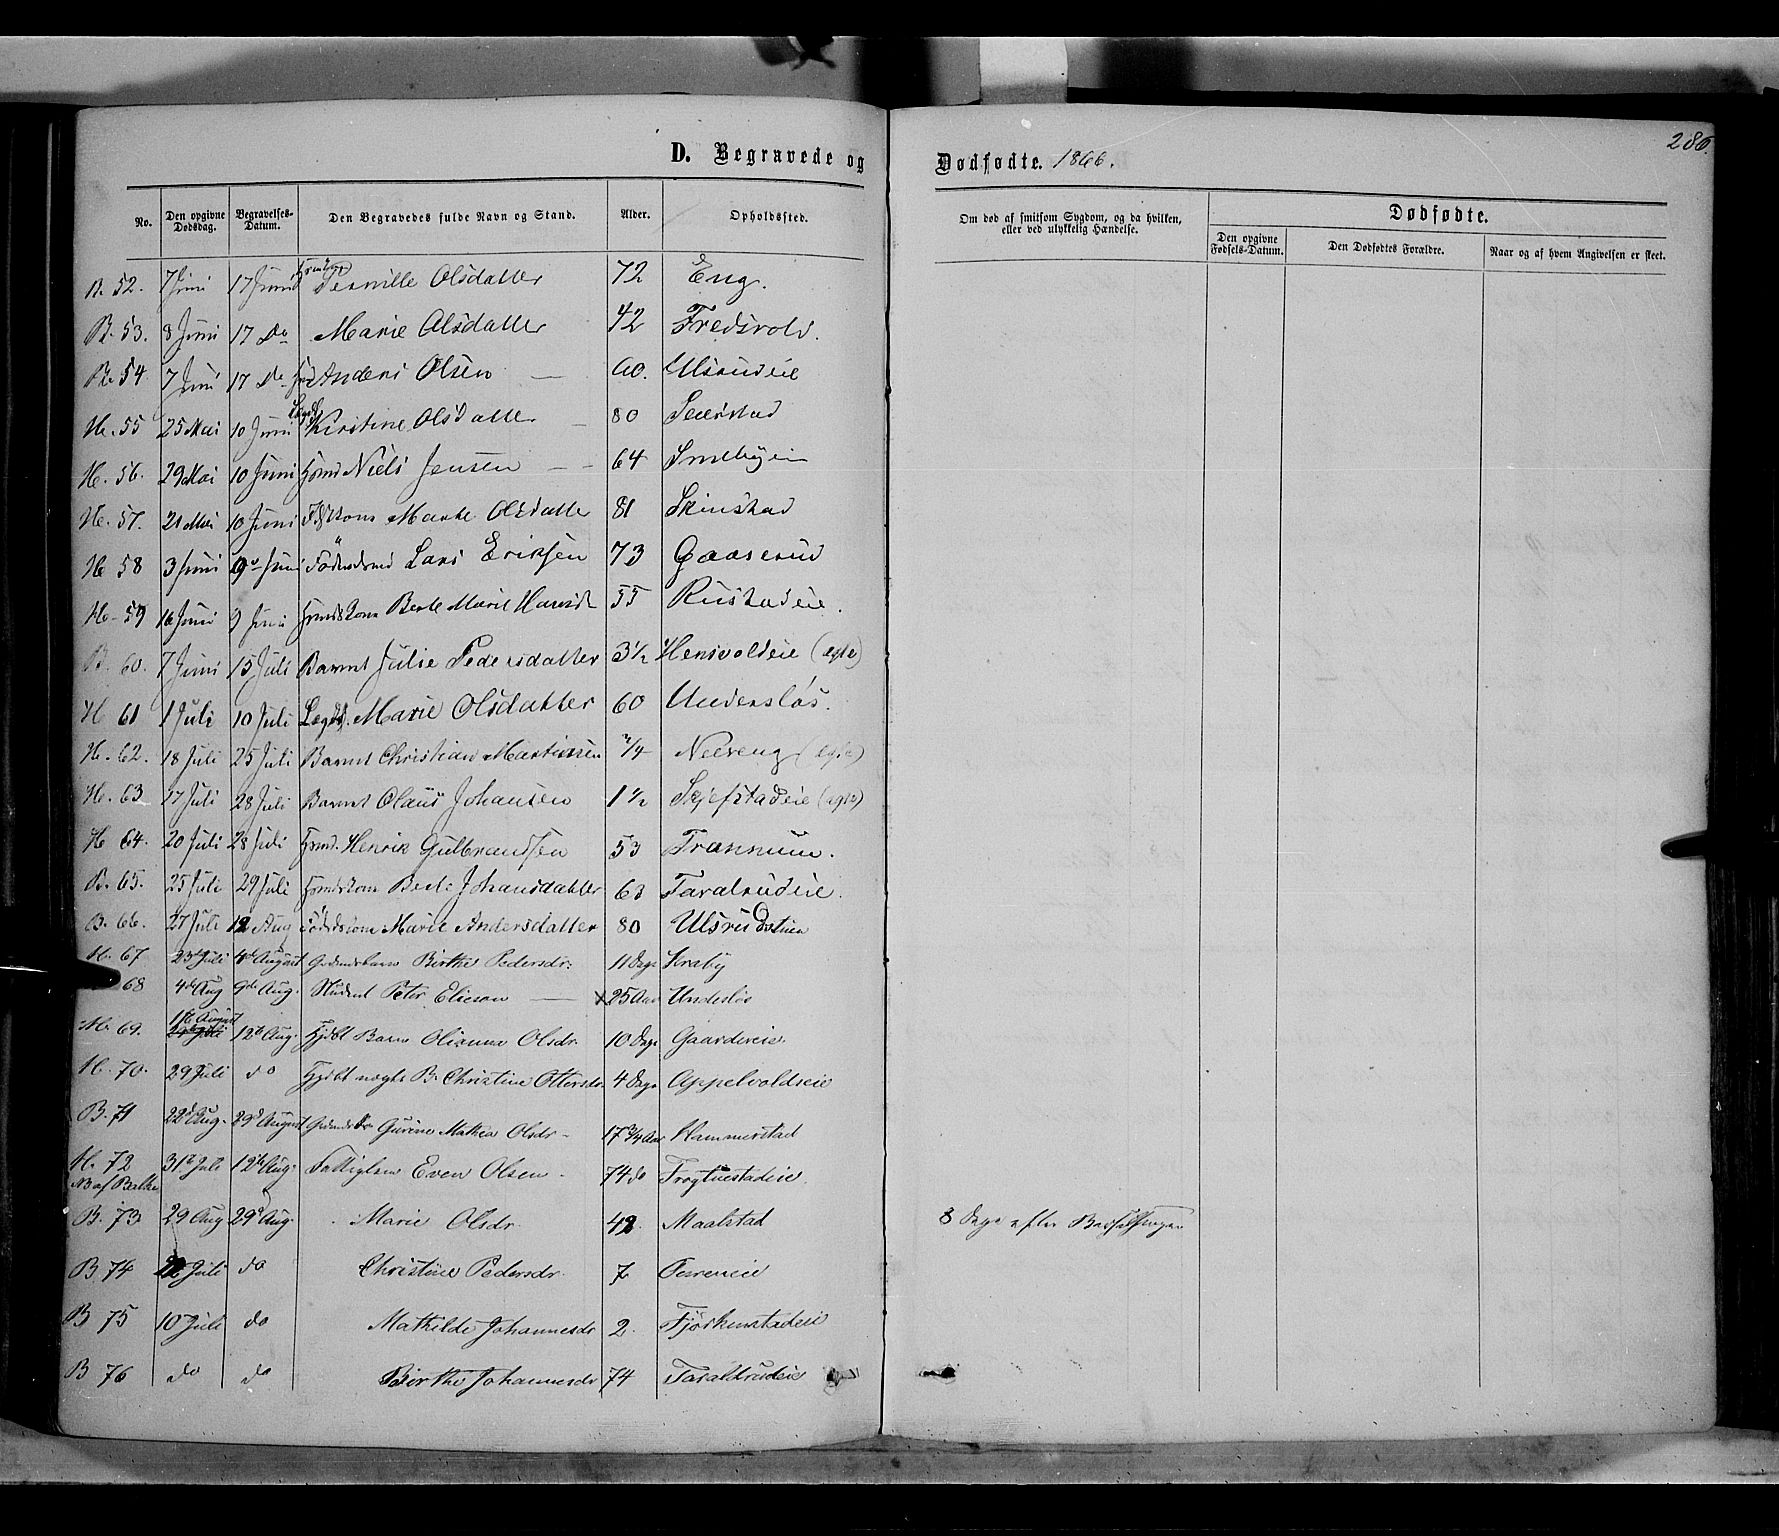 286.
D. Begravede og Dødfødte. 1866.
No.
Den opgivne Dødsdag.
Begravelses-Datum.
Den Begravedes fulde Navn og Stand.
Alder.
Opholdssted.
Om død af smitsom Sygdom, og da hvilken, eller ved ulykkelig Hændelse.
Dødfødte.
Den opgivne Fødsels-Datum.
Den Dødfødtes Forældre.
Naar og af hvem Angivelsen er skeet.
B. 52. 7 Juni 17 Juni Pernille Olsdatter 72 Eng.
B. 53. 8 Juni 17 Do Marie Olsdatter 42 Fredsvold.
B. 54 7 Juni 17 Do Anders Olsen 60. Ulsrudeie
H. 55 25 Mai 10 Juni Kirstine Olsdatter 80 Seierstad
H. 56. 29 Mai 10 Juni Hsmd Niels Jensen 64 Smebyein
H. 57. 21 Mai 10 Juni Marte Olsdatter 81 Skinstad
H 58 3 Juni Juni Føderådsmd Lars Eriksen 73 Gaaserud
H. 59 16 Juni 9 Juni Hsmdskone Berte Marie Hansdt 55 Rustadeie.
B. 60. 7 Juni 15 Juli Barnet Julie Pedersdatter 3 1/2 Hensvoldeie (egte)
H 61 1 Juli 10 Juli Lægdsl. Marie Olsdatter 60 Undersløs.
H. 62. 18 Juli 25 Juli Barnet Christian Martinsen 3/4 Nelreng (egte)
H. 63 17 Juli 28 Juli Barnet Olaus Johansen 1 1/2 Skjefstadeie (egte)
H 64. 20 Juli 28 Juli Hsmd. Henrik Gulbrandsen 53 Trannum.
B. 65. 25 Juli 29 Juli Hsmdskone Berte Johansdatter 63 Taralrudeie.
B. 66. 27 Juli 12 Aug Føderådskone Marie Andersdatter 80 Ulsrudstuen
H. 67 23de Juli 4de August Gaardmdsbarn Birthe Pedersdr: 11 Dage Kraby
68 4de Aug 9de Aug. Student Peter Elieson 25 Aar Undersløs
H. 69. 11te August 12te Aug. Hjdbt Barn Olianna Olsdr 10 Dage Gaardereie
H. 70. 29 Juli do Hjdbt uægte B. Christine Ottersdr. 4 Dage Appelvoldseie
B. 71 22d Aug. 29d August Gurine Mathea Olsdr 17 3/4 Aar Hammerstad
H. 72 31te Juli 12te Aug. Fattiglem Even Olsen 74 do Frogtuestadeie.
B. 73 29 Aug 29d Aug. Marie Olsdr. 42. Maalstad 8 Dage efter Barselsengen
B 74 22 Juli do Christine Pedersdr. 7
B 75 10 Juli do Mathilde Johannesdr 2. Fjøskenstadeie
B 76 do do Birthe Johannesdr 74 Taraldrudeie